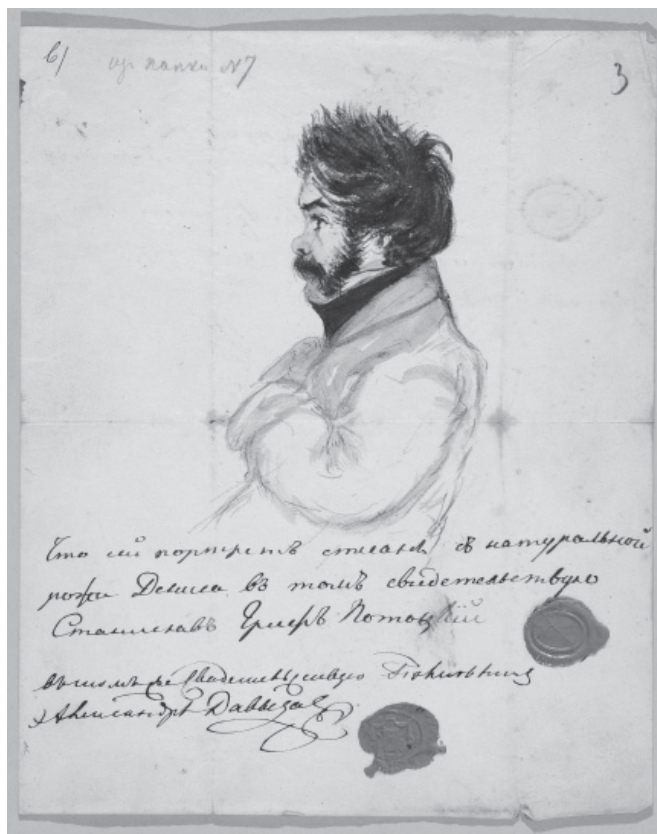 папки N7
3
Что сій портретъ списанъ съ натуральной
рожи Дениса въ томъ свидетельствую
Станиславъ Графъ Потоцкій
въ томъ же свидетельствую
Александръ Давыдов